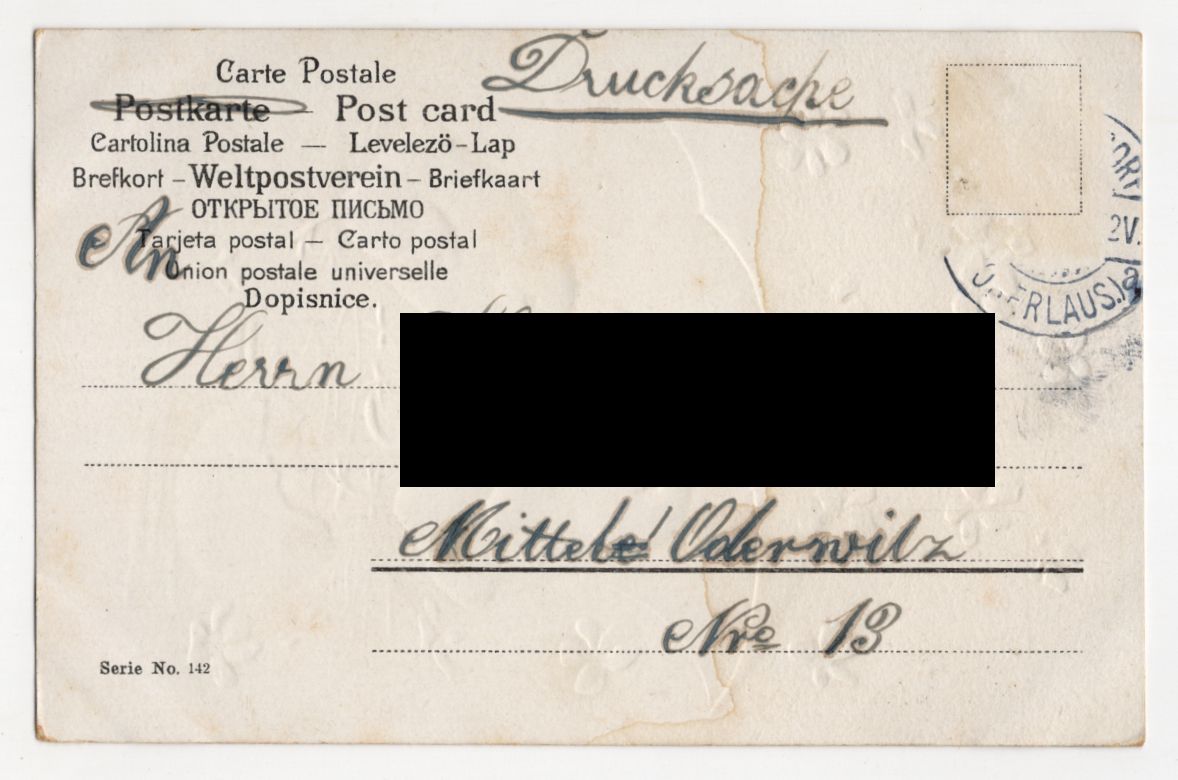 Drucksache
Carte Postale
Postkarte — Post card
Cartolina Postale — Levelezö-Lap
Brefkort – Weltpostverein – Briefkaart
ОТКРЫТОЕ ПИСЬМО
Tarjeta postal — Carto postal
Union postale universelle
Dopisnice.
An
Herrn
Mittel Oderwitz
Nro 13
Serie No. 142
ORF
2V.
ERLAUS.)a